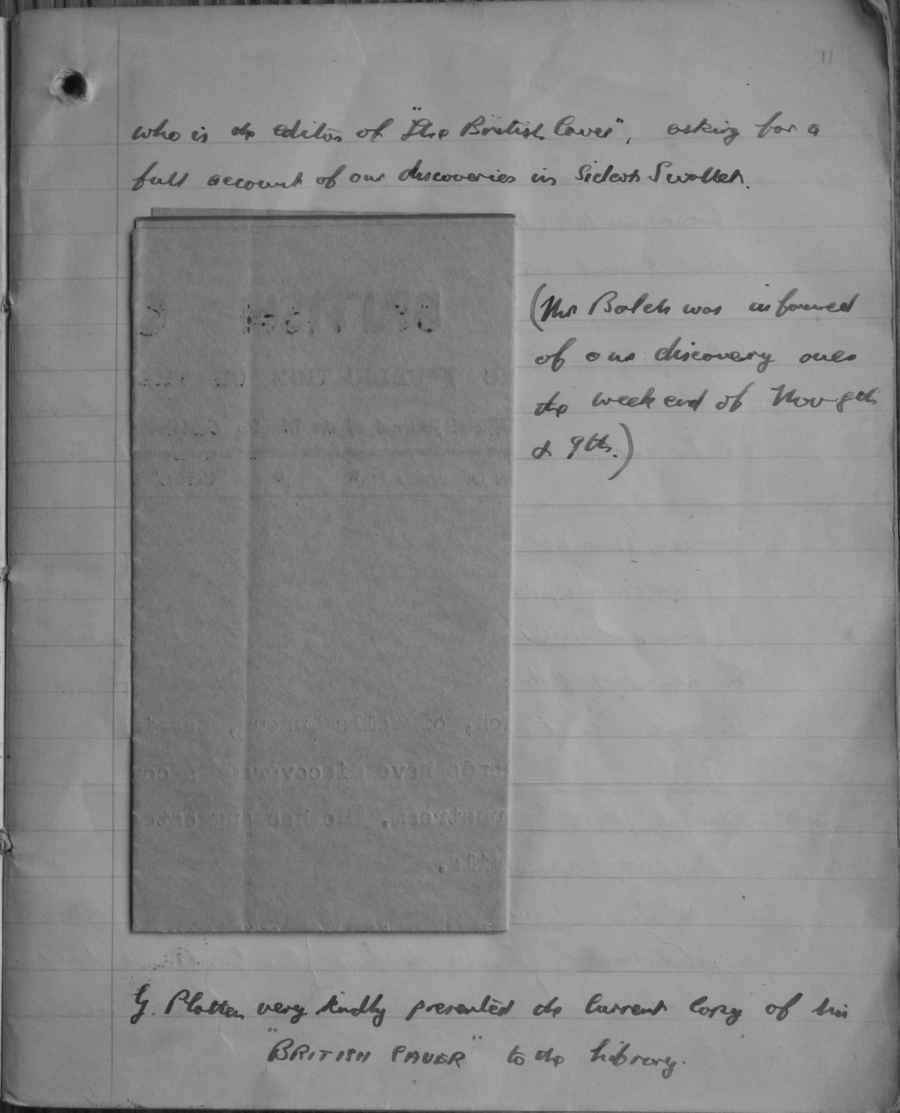 11
who is the editor of "The British Caver", asking for a
full account of our discoveries in Sidcot Swallet.
(Mr Balch was informed
of our discovery over
the week end of Nov 8th
& 9th.)
G. Platten very kindly presented the current copy of his
"BRITISH CAVER" to the library.